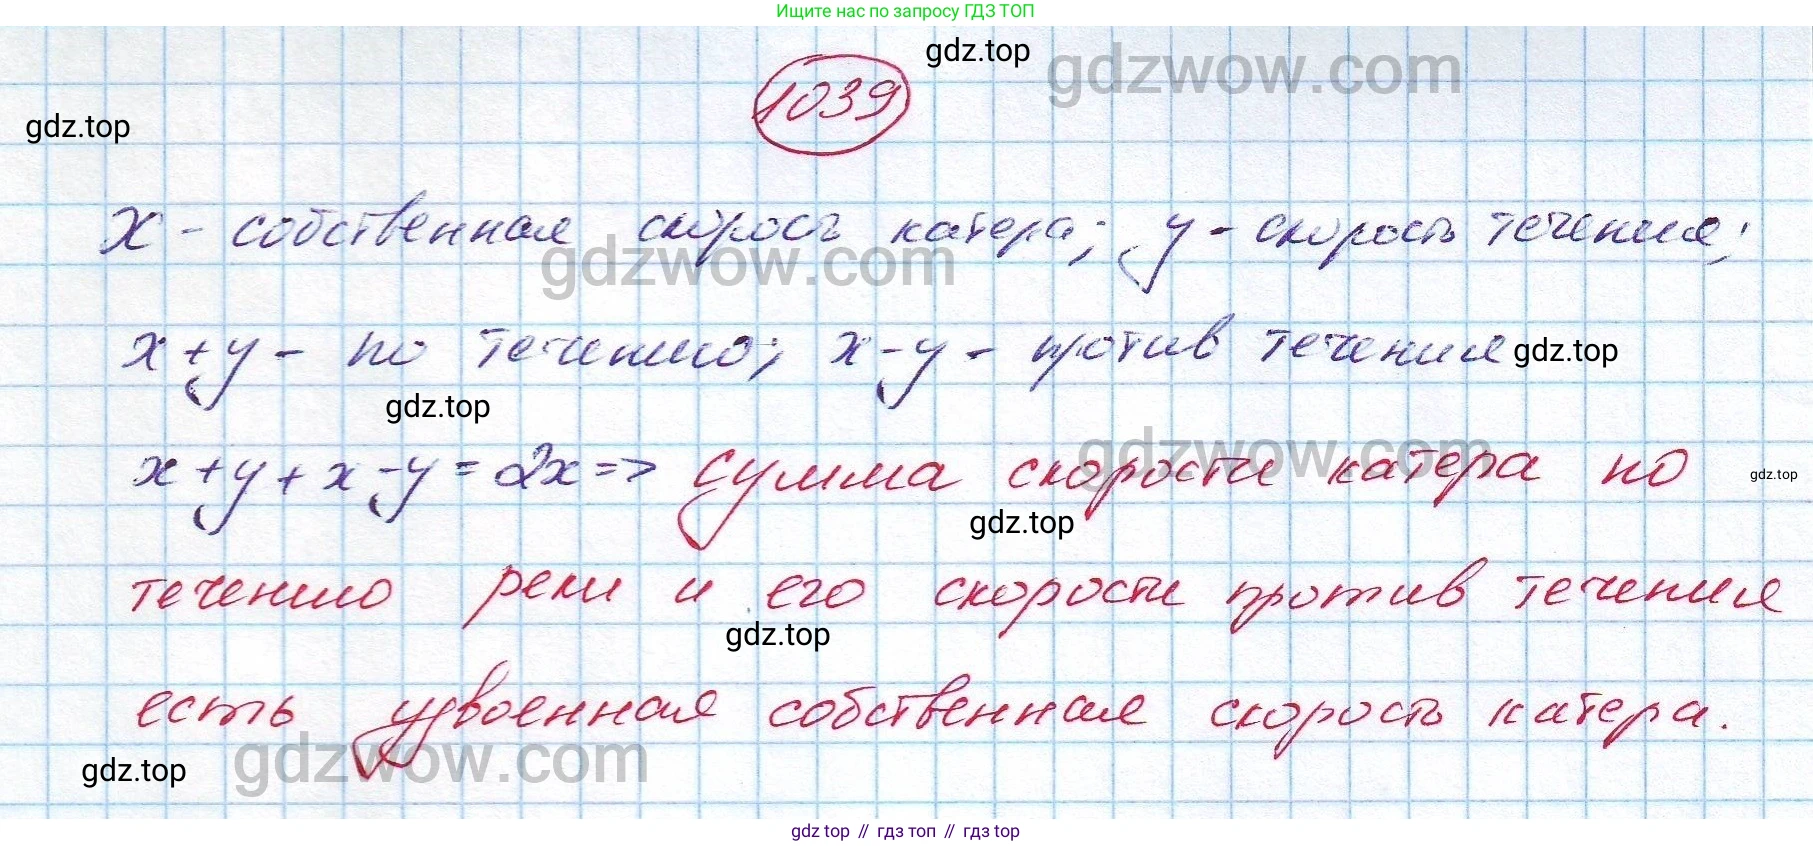 Ищите нас по запросу ГДЗ ТОП
gdz.top
gdzwow.com
1039
gdz.top
x - собственная скорость катера; y - скорость течения;
gdzwow.com
x+y - по течению; x-y - против течения
gdz.top
gdz.top
gdzwow.com
x+y+x-y=2x=> Сумма скорости катера по
gdz.top
gdz.top
течению реки и его скорости против течения
gdz.top
есть удвоенная собственная скорость катера.
gdz.top
gdzwow.com
gdz top // гдз топ // гдз top